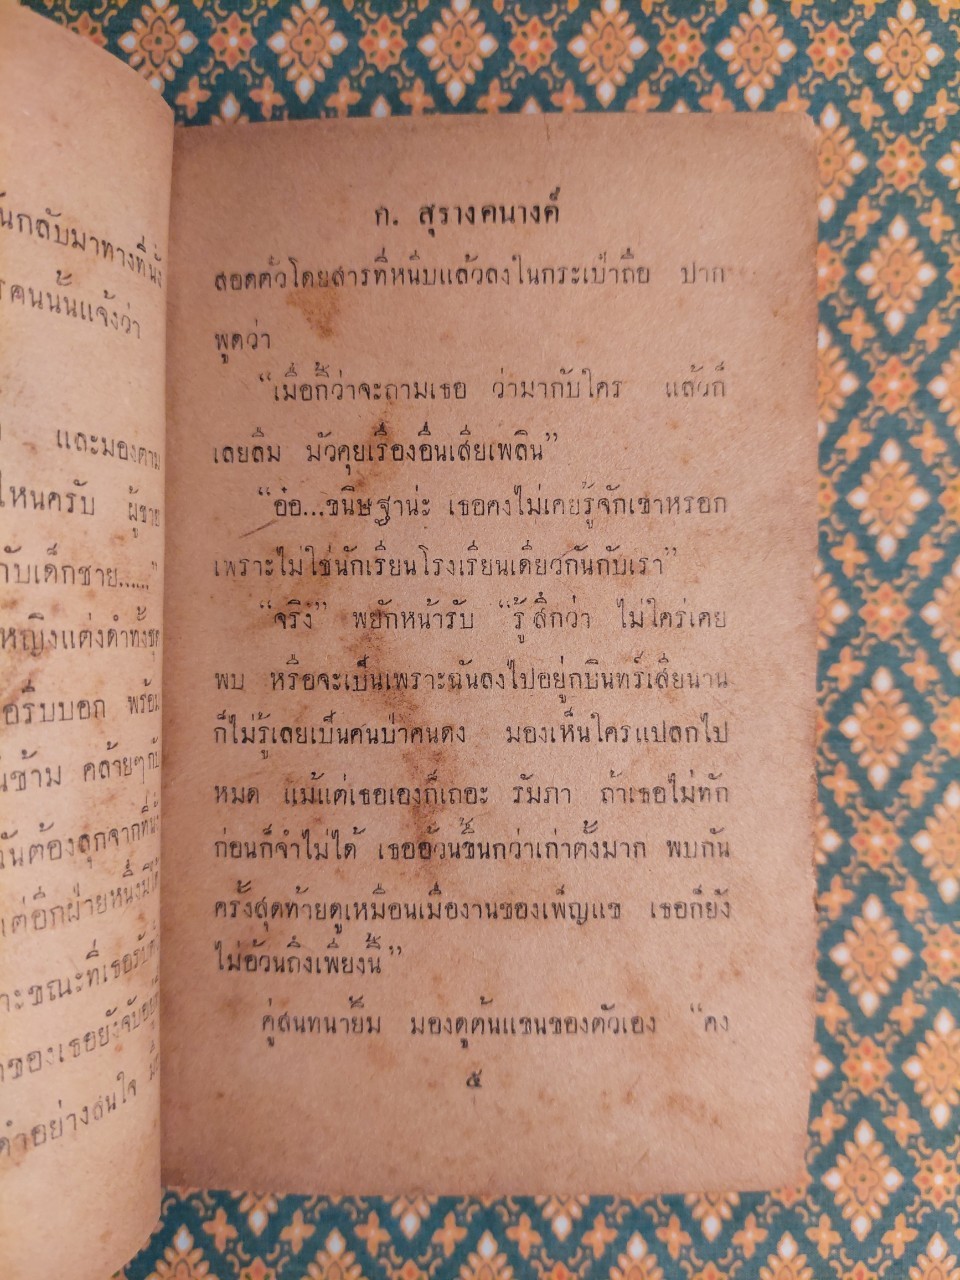 นกลับมาทางที่นั่ง
คนนั้นแจ้งว่า
และมองตาม
ไหนครับ ผู้ชาย
กับเด็กชาย......"
หญิงแต่งดำทั้งชุด
อรีบบอก พร้อม
นข้าม คล้ายๆ กับ
นต้องลุกจากที่นั่ง
แต่อีกฝ่ายหนึ่งมิได้
าะขณะที่เธอรับตั๋
ของเธอยังจับอยู่
คำอย่างสนใจ
ก. สุรางคนางค์
สอดตัวโดยสารที่หนีบแล้วลงในกระเป๋าถือ ปาก
พูดว่า
“เมื่อกี้ว่าจะถามเธอ ว่ามากับใคร แล้วก็
เลยลืม มัวคุยเรื่องอื่นเสียเพลิน”
“อ๋อ...ขนิษฐาน่ะ เธอคงไม่เคยรู้จักเขาหรอก
เพราะไม่ใช่นักเรียนโรงเรียนเดียวกันกับเรา”
“จริง” พยักหน้ารับ “รู้สึกว่า ไม่ใคร่เคย
พบ หรือจะเป็นเพราะฉันลงไปอยู่กบินทร์เสียนาน
ก็ไม่รู้เลยเป็นคนป่าคนดง มองเห็นใครแปลกไป
หมด แม้แต่เธอเองก็เถอะ รัมภา ถ้าเธอไม่ทัก
ก่อนก็จำไม่ได้ เธออ้วนขึ้นกว่าเก่าตั้งมาก พบกัน
ครั้งสุดท้ายดูเหมือนเมื่องานของเพ็ญแข เธอก็ยัง
ไม่อ้วนถึงเพียงนี้”
คู่สนทนายิ้ม มองดูต้นแขนของตัวเอง “คง
๕